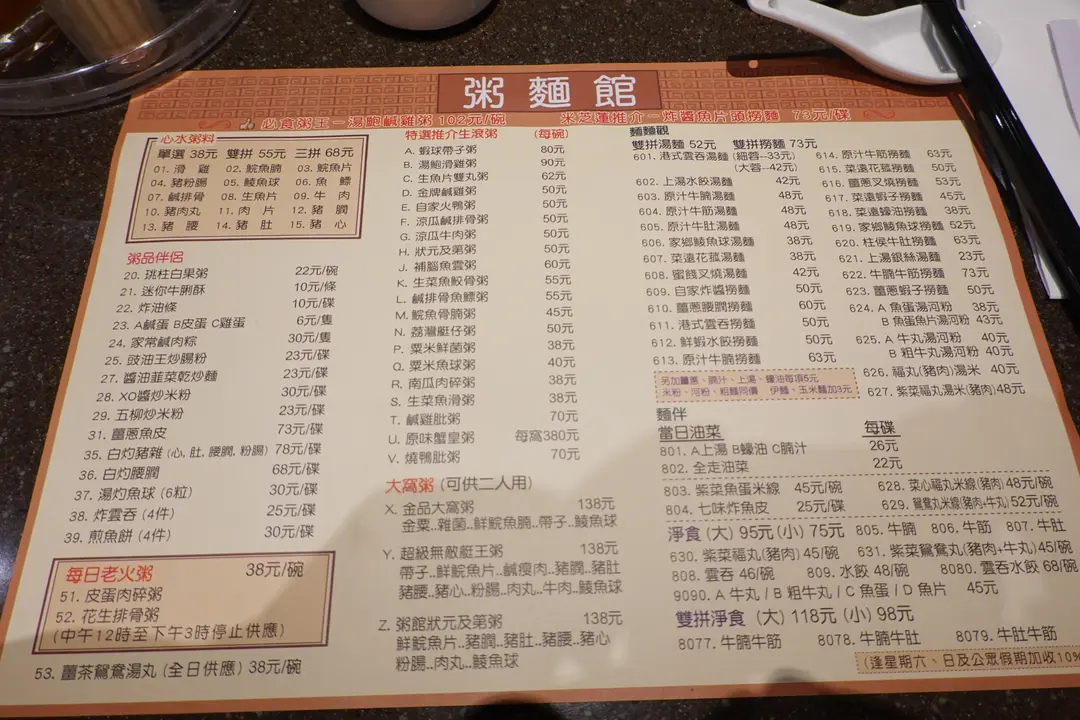 粥麵館
必食粥王－湯鮑鹹雞粥 102元/碗
米芝蓮推介－炸醬魚片頭撈麵 73元/碟
心水粥料
單選 38元 雙拼 55元 三拼 68元
01. 滑 雞 02. 鯇魚腩 03. 鯇魚片
04. 豬粉腸 05. 鯪魚球 06. 魚 鰾
07. 鹹排骨 08. 生魚片 09. 牛 肉
10. 豬肉丸 11. 肉 片 12. 豬 膶
13. 豬 腰 14. 豬 肚 15. 豬 心
粥品伴侶
20. 珧柱白果粥 22元/碗
21. 迷你牛脷酥 10元/條
22. 炸油條 10元/碟
23. A鹹蛋 B皮蛋 C雞蛋 6元/隻
24. 家常鹹肉粽 30元/隻
25. 豉油王炒腸粉 23元/碟
27. 醬油韮菜乾炒麵 23元/碟
28. XO醬炒米粉 30元/碟
29. 五柳炒米粉 23元/碟
31. 薑蔥魚皮 73元/碟
35. 白灼豬雜 (心, 肚, 腰膶, 粉腸) 78元/碟
36. 白灼腰膶 68元/碟
37. 湯灼魚球 (6粒) 30元/碟
38. 炸雲吞 (4件) 25元/碟
39. 煎魚餅 (4件) 30元/碟
每日老火粥 38元/碗
51. 皮蛋肉碎粥
52. 花生排骨粥
(中午12時至下午3時停止供應)
53. 薑茶鴛鴦湯丸 (全日供應) 38元/碗
特選推介生滾粥 (每碗)
A. 蝦球帶子粥 80元
B. 湯鮑滑雞粥 90元
C. 生魚片雙丸粥 62元
D. 金牌鹹雞粥 50元
E. 自家火鴨粥 50元
F. 涼瓜鹹排骨粥 50元
G. 涼瓜牛肉粥 50元
H. 狀元及第粥 50元
J. 補腦魚雲粥 60元
K. 生菜魚鮫骨粥 55元
L. 鹹排骨魚鰾粥 55元
M. 鯇魚骨腩粥 45元
N. 荔灣艇仔粥 50元
P. 粟米鮮菌粥 38元
Q. 粟米魚球粥 40元
R. 南瓜肉碎粥 38元
S. 生菜魚滑粥 38元
T. 鹹雞肶粥 70元
U. 原味蟹皇粥 每窩380元
V. 燒鴨肶粥 70元
大窩粥 (可供二人用)
X. 金品大窩粥 138元
金粟..雜菌..鮮鯇魚腩..帶子..鯪魚球
Y. 超級無敵艇王粥 138元
帶子..鮮鯇魚片..鹹瘦肉..豬膶..豬肚
豬腰..豬心..粉腸..肉丸..牛肉..鯪魚球
Z. 粥館狀元及第粥 138元
鮮鯇魚片..豬膶..豬肚..豬腰..豬心
粉腸..肉丸..鯪魚球
麵麵觀
雙拼湯麵 52元 雙拼撈麵 73元
601. 港式雲吞湯麵 (細蓉--33元)
(大蓉--42元)
602. 上湯水餃湯麵 42元
603. 原汁牛腩湯麵 48元
604. 原汁牛筋湯麵 48元
605. 原汁牛肚湯麵 48元
606. 家鄉鯪魚球湯麵 38元
607. 菜遠花菰湯麵 38元
608. 蜜餞叉燒湯麵 42元
609. 自家炸醬撈麵 50元
610. 薑蔥腰膶撈麵 60元
611. 港式雲吞撈麵 50元
612. 鮮蝦水餃撈麵 50元
613. 原汁牛腩撈麵 63元
614. 原汁牛筋撈麵 63元
615. 菜遠花菰撈麵 50元
616. 薑蔥叉燒撈麵 53元
617. 菜遠蝦子撈麵 45元
618. 菜遠蠔油撈麵 38元
619. 家鄉鯪魚球撈麵 52元
620. 柱侯牛肚撈麵 63元
621. 上湯銀絲湯麵 23元
622. 牛腩牛筋撈麵 73元
623. 薑蔥蝦子撈麵 50元
624. A 魚蛋湯河粉 38元
B 魚蛋魚片湯河粉 43元
625. A 牛丸湯河粉 40元
B 粗牛丸湯河粉 40元
626. 福丸(豬肉)湯米 40元
627. 紫菜福丸湯米(豬肉) 48元
另加薑蔥、腩汁、上湯、蠔油每項5元
米粉、河粉、粗麵同價 伊麵、玉米麵加3元
麵伴
當日油菜 每碟
801. A上湯 B蠔油 C腩汁 26元
802. 全走油菜 22元
803. 紫菜魚蛋米線 45元/碗
804. 七味炸魚皮 25元/碟
628. 菜心福丸米線(豬肉) 48元/碗
629. 鴛鴦丸米線(豬肉+牛丸) 52元/碗
淨食 (大) 95元 (小) 75元 805. 牛腩 806. 牛筋 807. 牛肚
630. 紫菜福丸(豬肉) 45/碗 631. 紫菜鴛鴦丸(豬肉+牛丸) 45/碗
808. 雲吞 46/碗 809. 水餃 48/碗 8080. 雲吞水餃 68/碗
9090. A 牛丸 / B 粗牛丸 / C 魚蛋 / D 魚片 45元
雙拼淨食 (大) 118元 (小) 98元
8077. 牛腩牛筋 8078. 牛腩牛肚 8079. 牛肚牛筋
(逢星期六、日及公眾假期加收10%